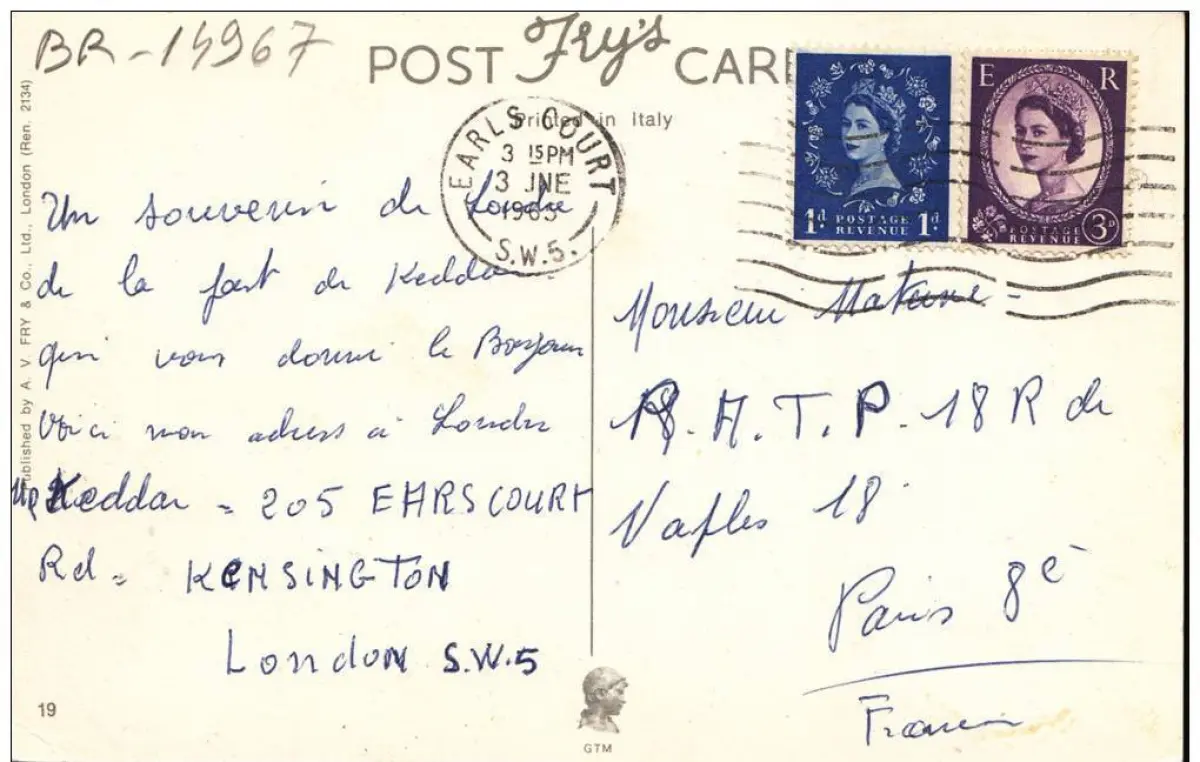 BR-14967
POST Fry's CARD
Printed in Italy
EARLS COURT
3 15PM
3 JNE
1963
S.W.5.
1d POSTAGE REVENUE 1d
E R
POSTAGE REVENUE 3D
Published by A. V. FRY & Co., Ltd., London (Ren. 2134)
Un souvenir de Londre
de la part de Keddar
qui vous donne le Bonjour
Voici mon adress à Londre
Mr Keddar = 205 EARSCOURT
Rd = KENSINGTON
London S.W.5
Monsieur
R.A.T.P. 18 R de
Naples 18
Paris 8e
France
19
GTM